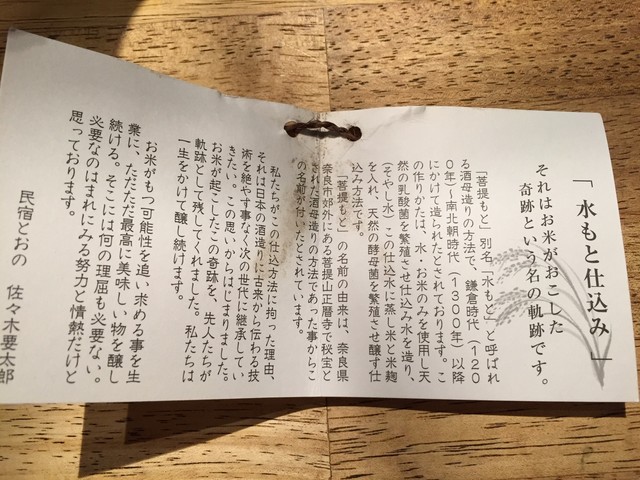 「水もと仕込み」
それはお米がおこした
奇跡という名の軌跡です。
「菩提もと」別名「水もと」と呼ばれ
る酒母造りの方法で、鎌倉時代（120
0年）ー南北朝時代（1300年）以降
にかけて造られたとされております。こ
の作りかたは、水・お米のみを使用し天
然の乳酸菌を繁殖させ仕込み水を造り、
(そやし水）この仕込水に蒸し米と米麹
を入れ、天然の酵母菌を繁殖させ醸す仕
込み方法です。
「菩提もと」の名前の由来は、奈良県
奈良市郊外にある菩提山正暦寺で秘宝と
された酒母造りの方法であった事からこ
の名前が付いたとされています。
私たちがこの仕込方法に拘った理由、
それは日本の酒造りに古来から伝わる技
術を絶やす事なく次の世代に継承してい
きたい。この思いからはじまりました。
お米が起こしたこの奇跡を、先人たちが
軌跡として残してくれました。私たちは
一生をかけて醸し続けます。
お米がもつ可能性を追い求める事を生
業に、ただただ最高に美味しい物を醸し
続ける。そこには何の理屈も必要ない。
必要なのはまれにみる努力と情熱だけと
思っております。
民宿とおの 佐々木要太郎